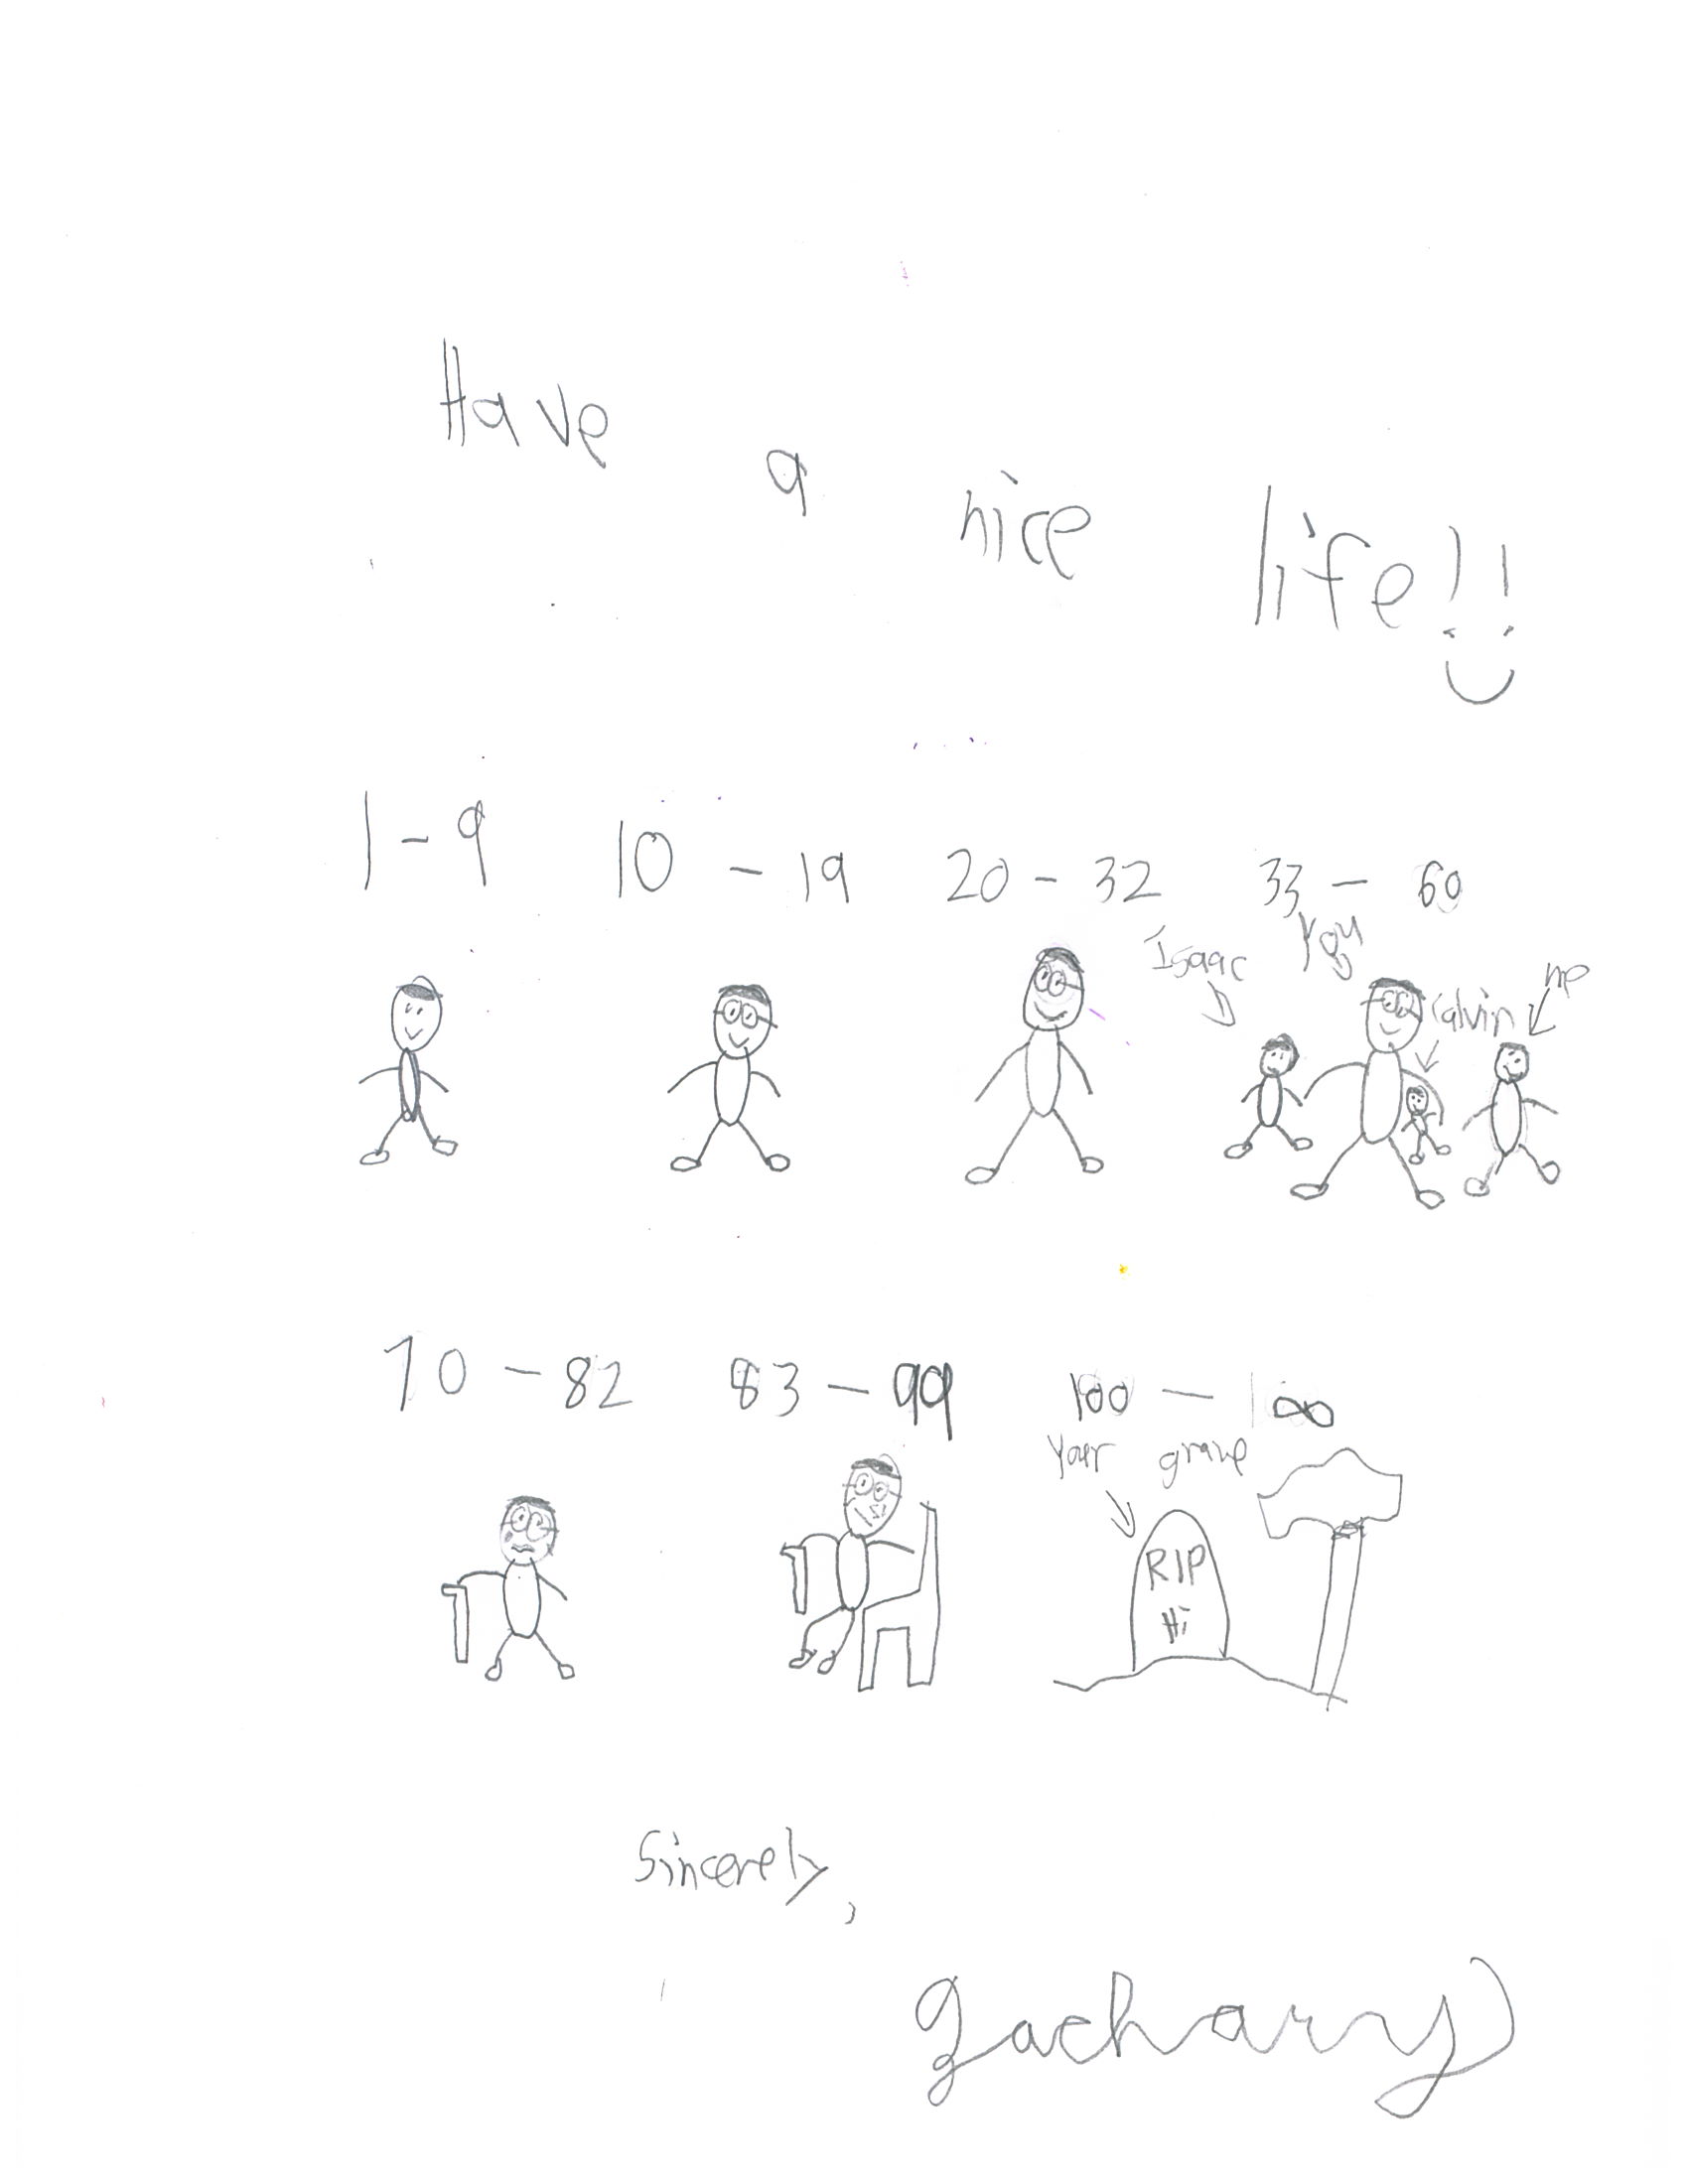 Have a nice life!!
1-9 10 - 19 20 - 32 33 - 60
Isaac You Calvin me
70 - 82 83 - 99 100 - ∞
Your grave
RIP
Hi
Sincerely,
Zachary